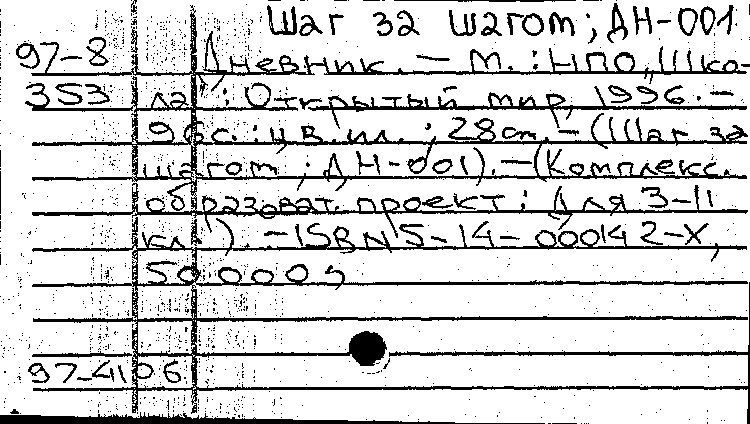 Шаг за шагом; ДН-001
97-8 Дневник. – М. : НПО „Шко-
353 ла": Открытый мир, 1996. –
96с. : цв. ил. ; 28см. – (Шаг за
шагом ; ДН-001). – (Комплекс.
образоват. проект : Для 3-11
кл.). – ISBN 5-14-000142-X,
50000э
97-4106